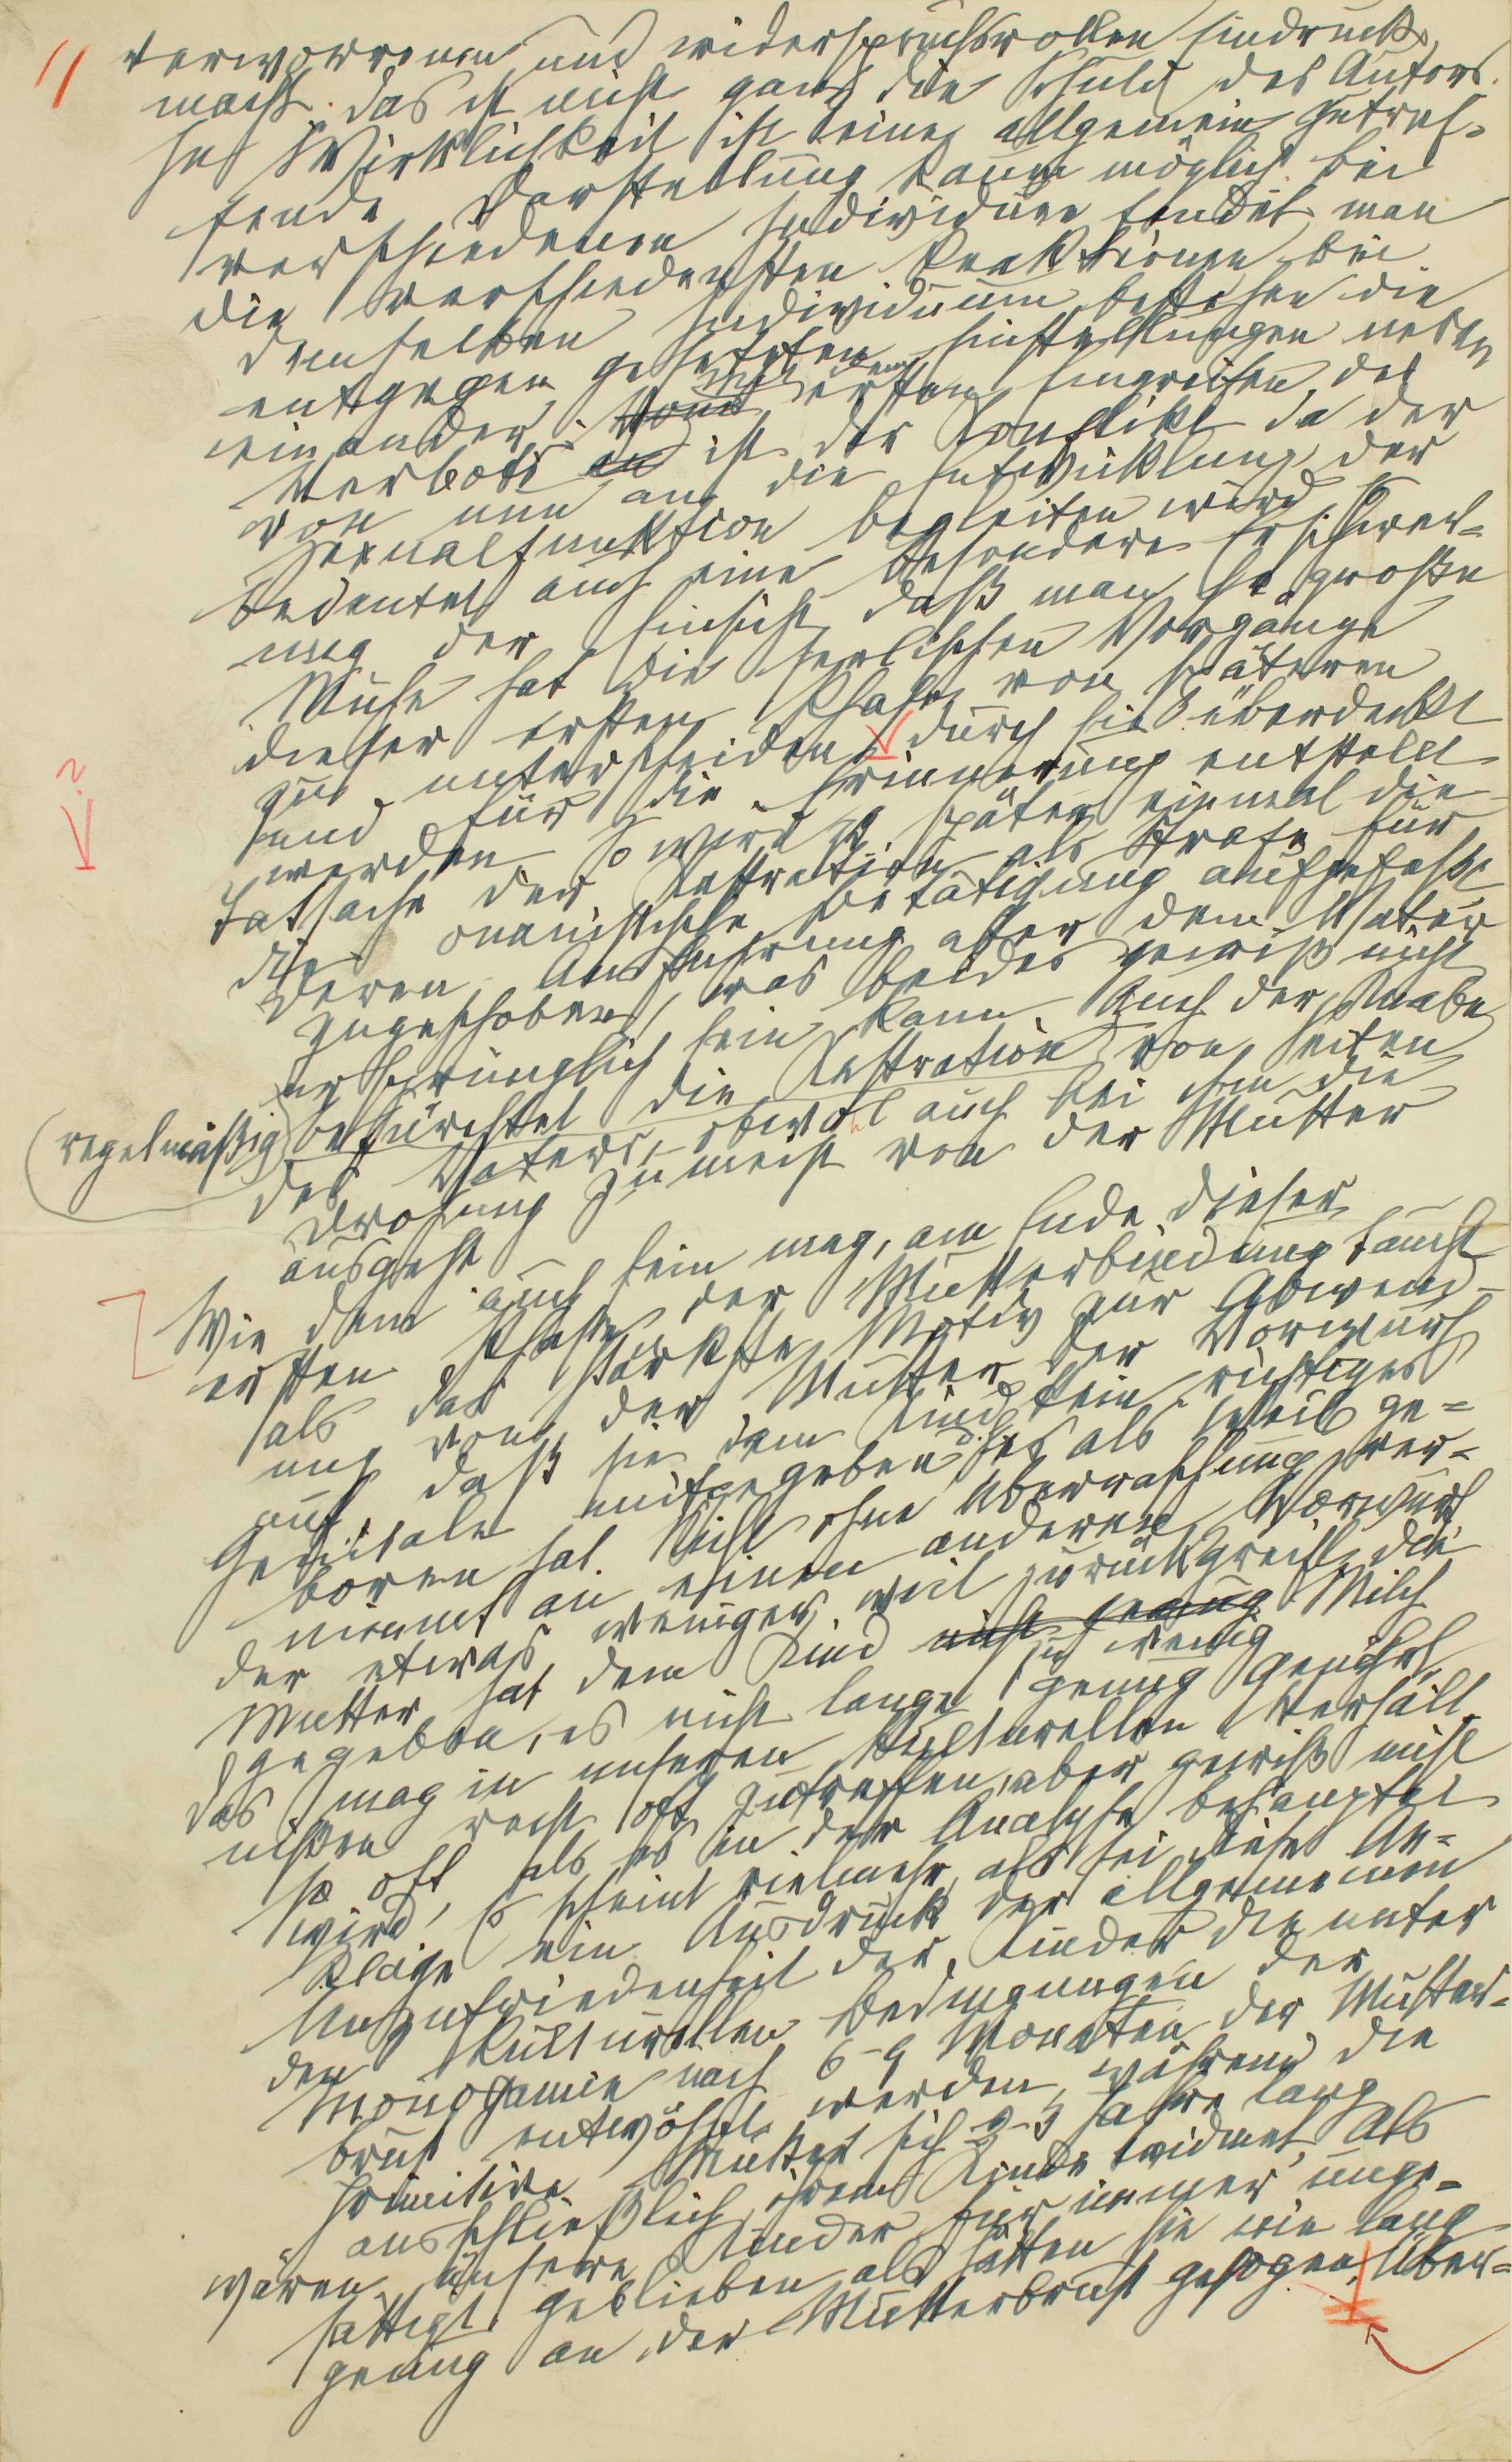 verworrenen und widerspruchsvollen Eindruck
macht. Das ist nicht ganz die Schuld des Autors.
In Wirklichkeit ist eine allgemein zutref-
fende Darstellung kaum möglich. Bei
verschiedenen Individuen findet man
die verschiedensten Reaktionen, bei
demselben Individuum bestehen die
entgegen gesetzten Einstellungen neben
einander. Mit dem ersten Eingreifen des
Verbots ist der Konflikt da der
von nun an die Entwicklung der
Sexualfunktion begleiten wird. Es
bedeutet auch eine besondere Erschwer-
ung der Einsicht, daß man so große
Mühe hat die seelischen Vorgänge
dieser ersten Phase von späteren
zu unterscheiden, durch die sie überdeckt
und für die Erinnerung entstellt
werden. So wird z. B. später einmal die
Tatsache der Kastration als Strafe für
die onanistische Betätigung aufgefaßt,
deren Ausführung aber dem Vater
zugeschoben, was beides gewiß nicht
ursprünglich sein kann. Auch der Knabe
(regelmäßig) befürchtet die Kastration von seiten
des Vaters, obwol auch bei ihm die
Drohung zumeist von der Mutter
ausgeht.
Wie dem auch sein mag, am Ende dieser
ersten Phase der Mutterbindung taucht
als das stärkste Motiv zur Abwend-
ung von der Mutter der Vorwurf
auf, daß sie dem Kind kein richtiges
Genitale mitgegeben, dh es als Weib ge-
boren hat. Nicht ohne Überraschung ver-
nimmt an einen anderen Vorwurf
der etwas weniger weit zurückgreift: die
Mutter hat dem Kind nicht genug zu wenig Milch
gegeben, es nicht lange genug genährt.
Das mag in unseren kulturellen Verhält-
nissen recht oft zutreffen, aber gewiß nicht
so oft als es in der Analyse behauptet
wird. Es scheint vielmehr, als sei diese An-
klage ein Ausdruck der allgemeinen
Unzufriedenheit der Kinder die unter
den kulturellen Bedingungen der
Monogamie nach 6-9 Monaten der Mutter-
brust entwöhnt werden, während die
primitive Mutter sich 2-3 Jahre lang
ausschließlich ihrem Kinde widmet. Als
wären unsere Kinder für immer unge-
sättigt geblieben, als hätten sie nie lang
genug an der Mutterbrust gesogen. Über-